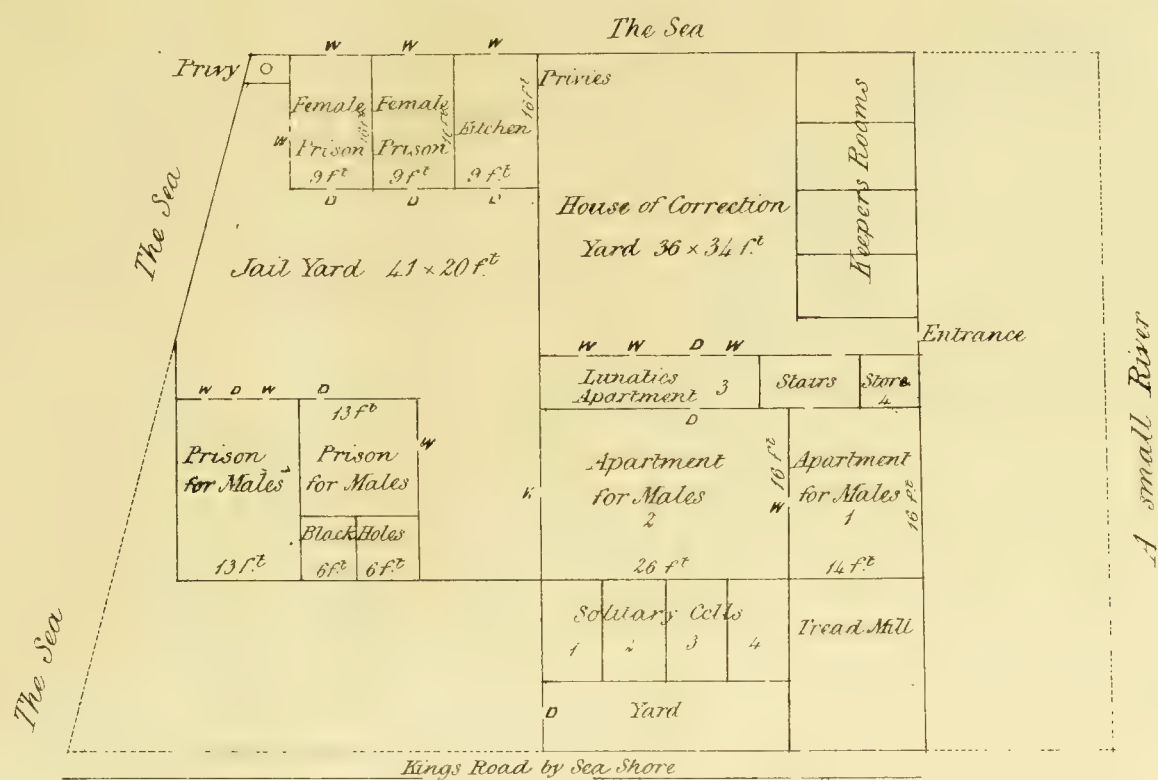 The Sea
W W W
Privy
Privies
Female
Prison
16 ft
9 f.t
Female
Prison
16 ft
9 f.t
Kitchen
16 ft
9 f.t
W
D D D
The Sea
Jail Yard 41 × 20 f.t
House of Correction
Yard 36 × 34 f.t
Keepers Rooms
Entrance
A small River
W W D W
Lunatics
Apartment 3
Stairs
Store
4
D
W D W D
13 f.t
Prison
for Males
13 f.t
Prison
for Males
W
Black Holes
6 f.t 6 f.t
W
Apartment
for Males
2
16 f.t
26 f.t
W
Apartment
for Males
1
16 f.t
14 f.t
Solitary Cells
1 2 3 4
Tread Mill
D Yard
The Sea
Kings Road by Sea Shore